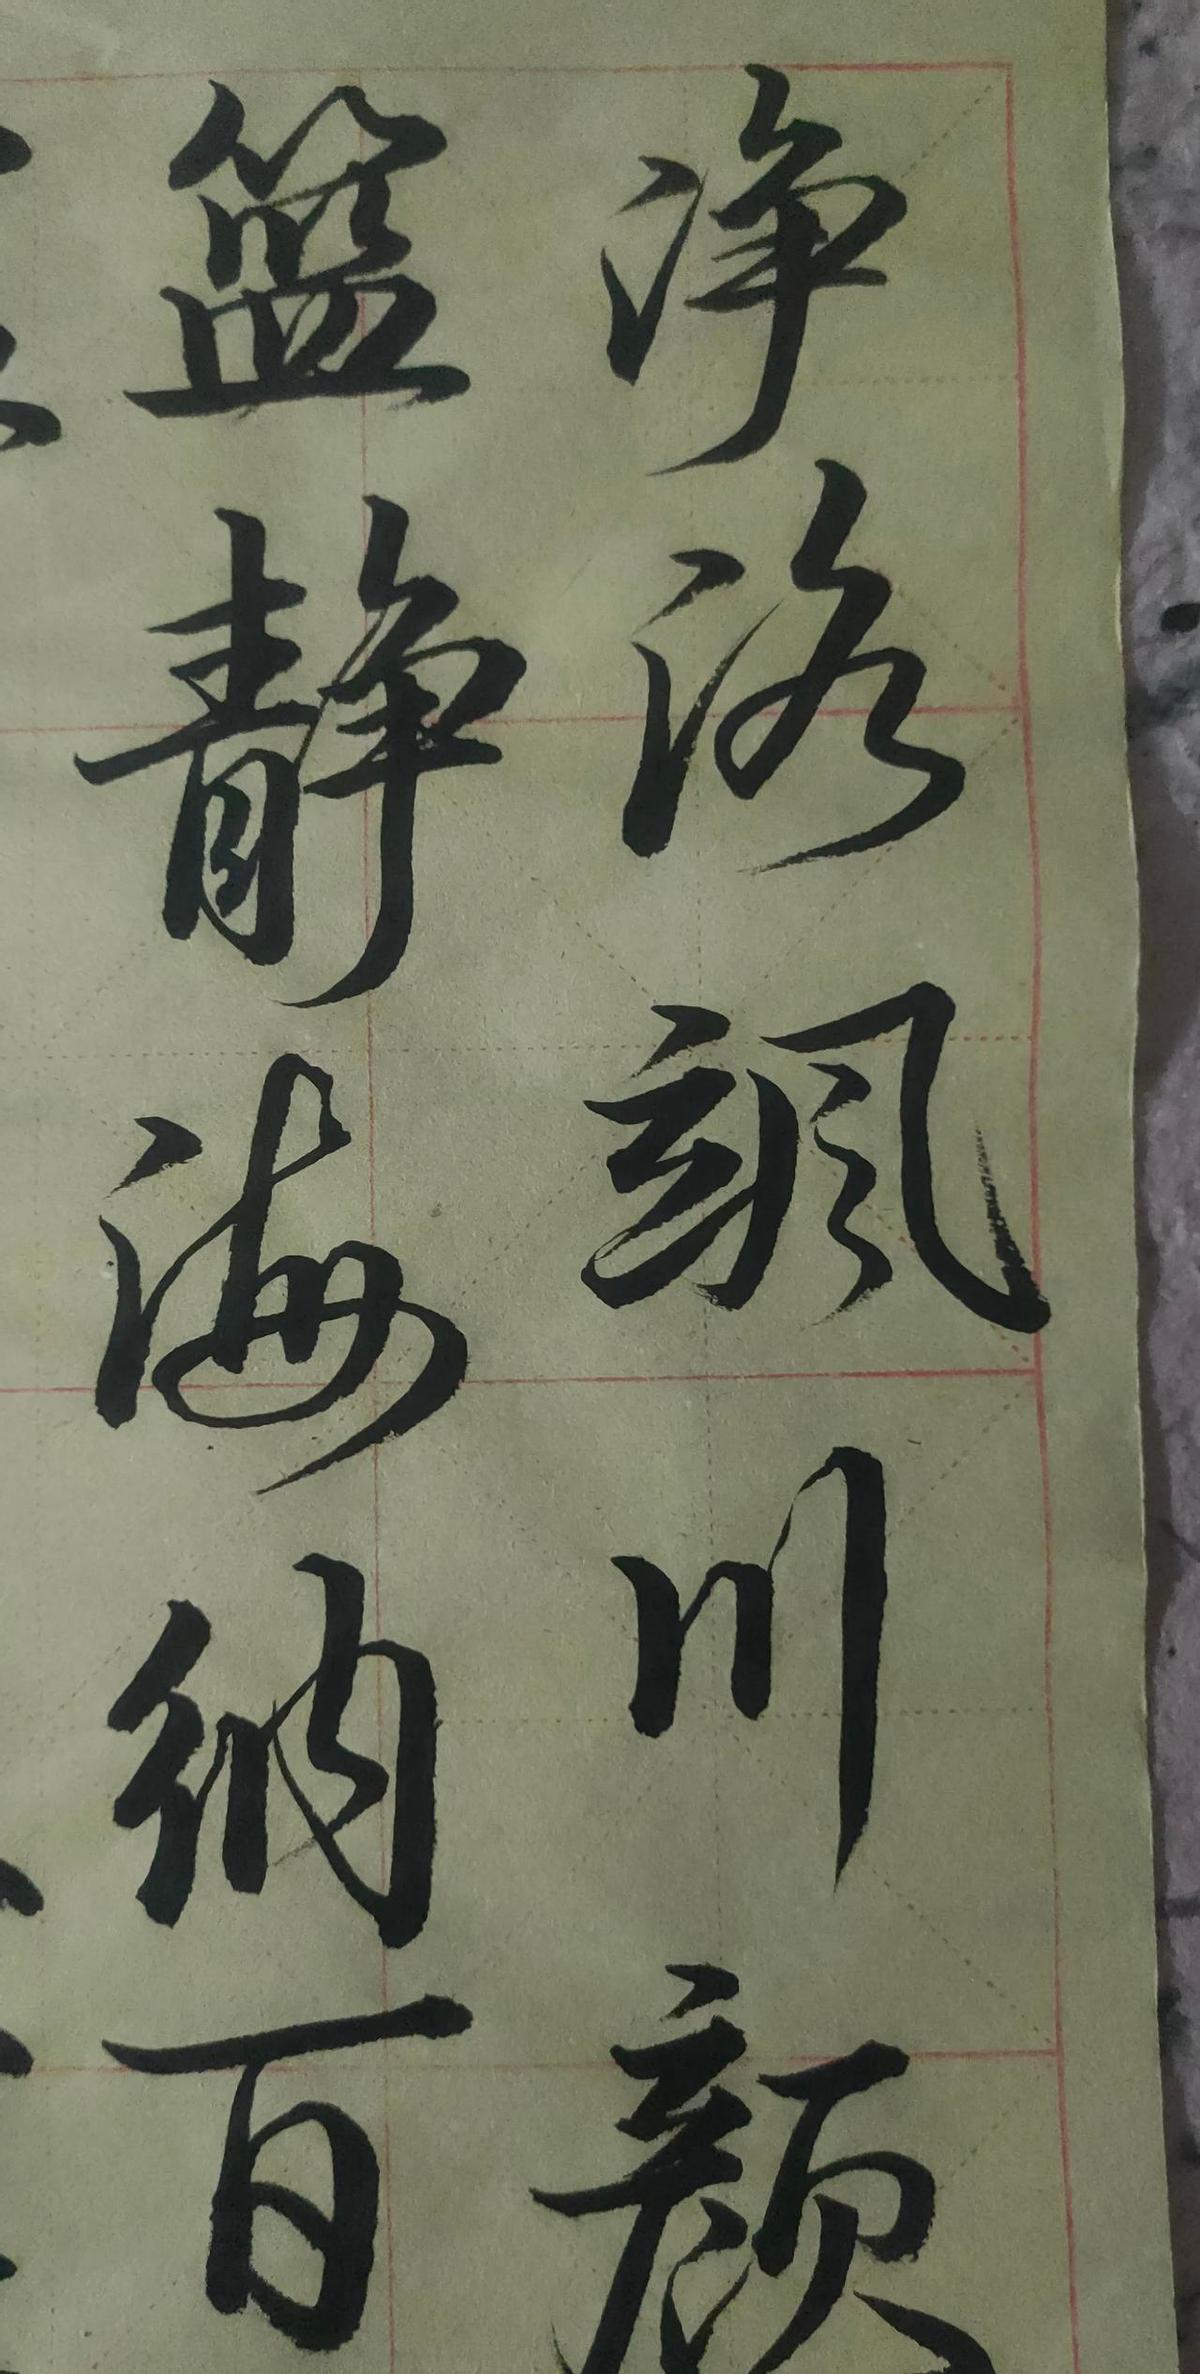 净洛飒川颜
篮静海纳百